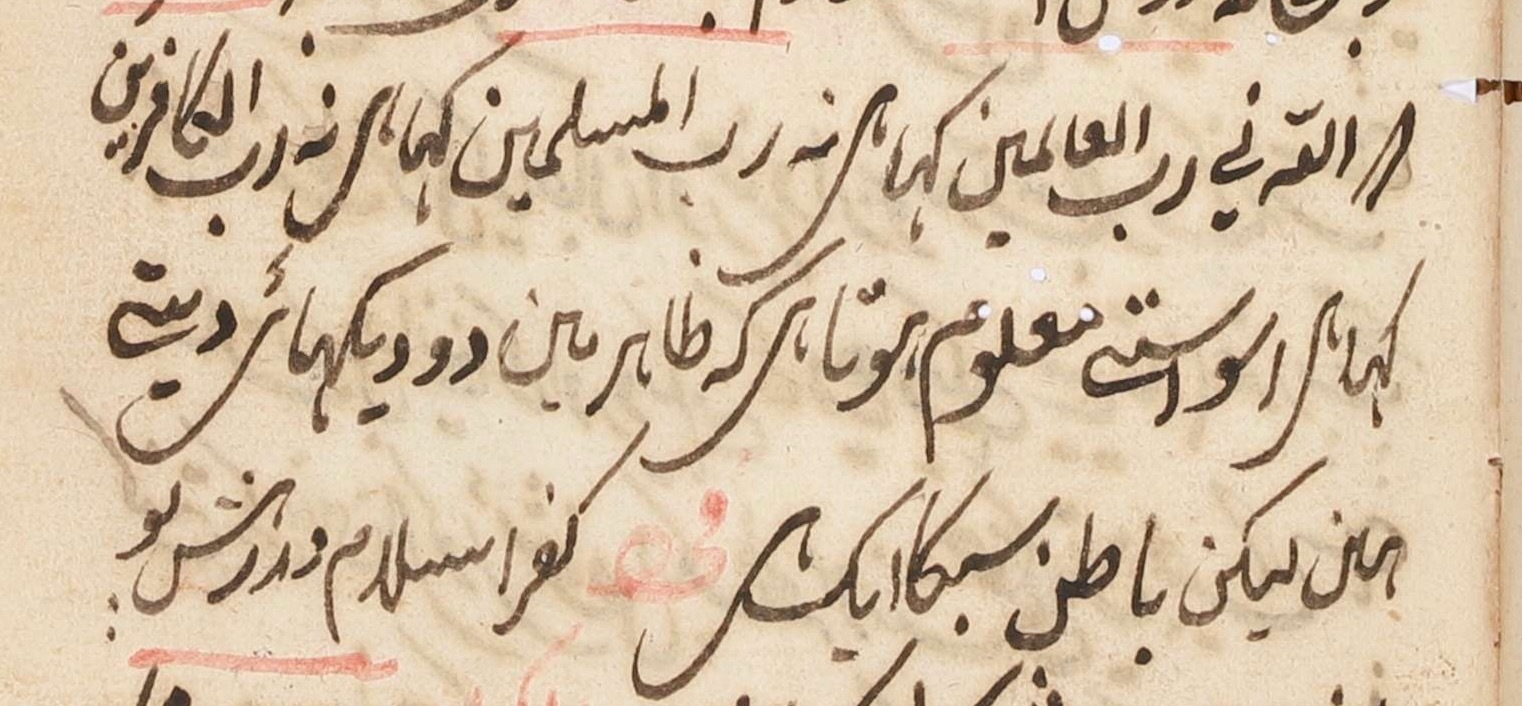 اللہ نی رب العالمین کہا ہی نہ رب المسلمین کہا ہی نہ رب الکافرین
کہا ہی اسواستے معلوم ہوتا ہی کہ ظاہر مین دو دیکہائی دیتے
ہین لیکن باطن سبکا ایک ہی کفر اسلام در رہش